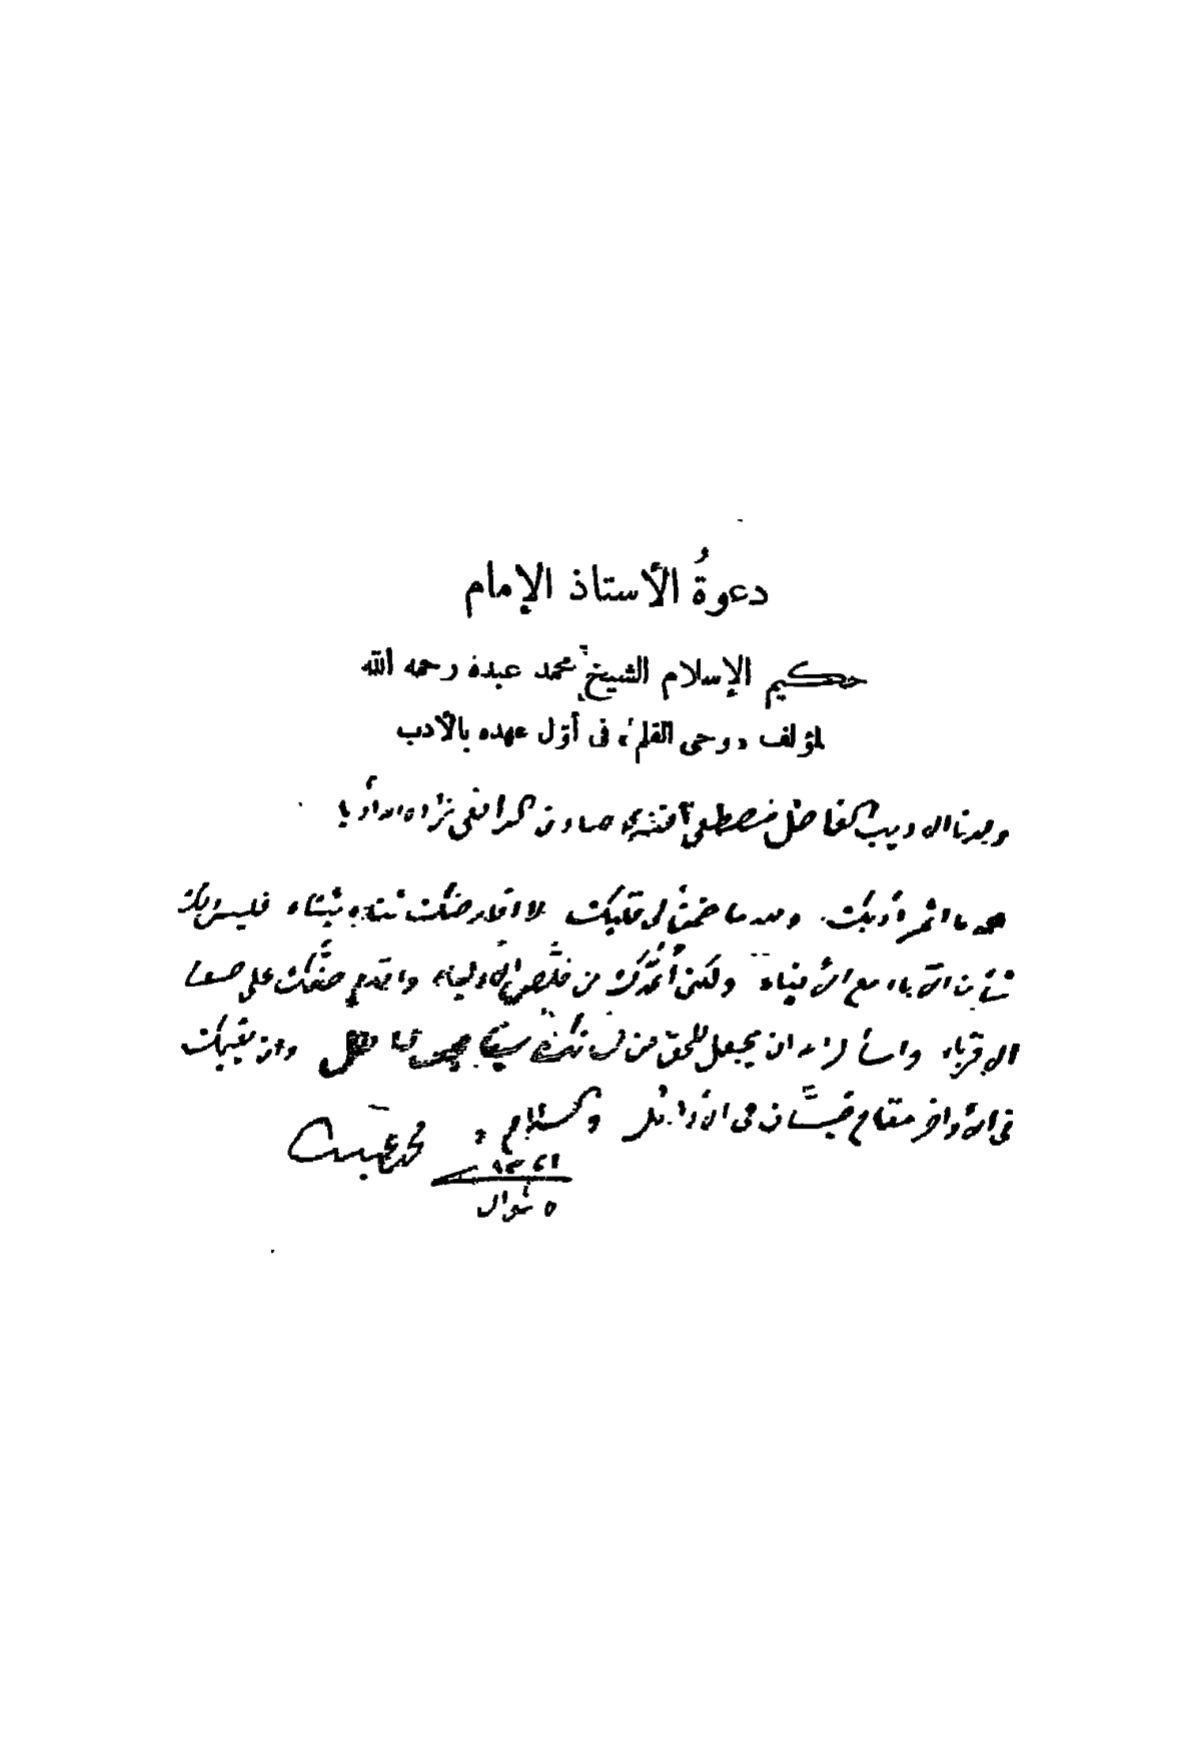 دعوةُ الأستاذ الإمام
حكيم الإسلام الشيخ محمد عبده رحمه الله
لمؤلف «وحى القلم» فى أوّل عهده بالأدب
ولدنا الاديب الفاضل مصطفى افندى صادق الرافعى زاده الله أدبا
لله ما اثمر أدبك ولله ما ضمن لى قلبك لا اقارضك ثناء بثناء فليس ذلك
شأن الآباء مع الأبناء ولكنى أعدّك من خلّص الأولياء واقدم صفّك على صف
الاقرباء واسأل الله ان يجعل للحق من لسانك سيفا يمحق الباطل وان يقيمك
فى الأواخر مقام حسّان فى الأوائل والسلام
محمد عبده
١٣٢١
٥ شوال